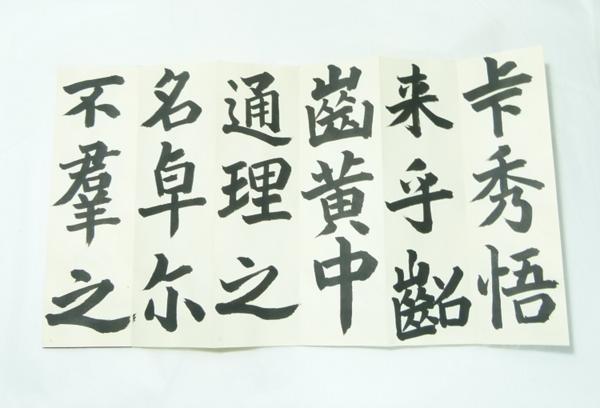 卡秀悟
来乎齠
齒黄中
通理之
名卓尔
不羣之